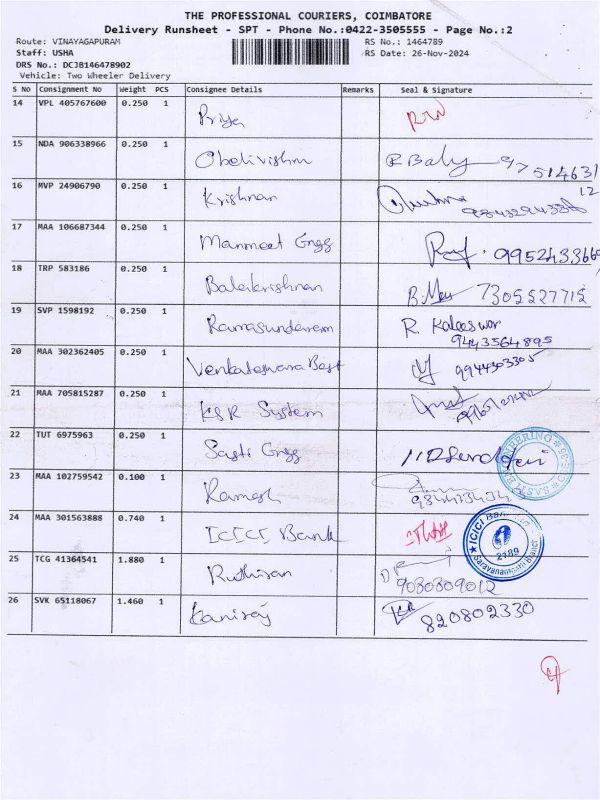 THE PROFESSIONAL COURIERS, COIMBATORE
Delivery Runsheet - SPT - Phone No.:0422-3505555 - Page No.:2
Route: VINAYAGAPURAM
Staff: USHA
DRS No.: DCJB146478902
Vehicle: Two Wheeler Delivery
RS No.: 1464789
RS Date: 26-Nov-2024
S No Consignment No Weight PCS Consignee Details Remarks Seal & Signature
14 VPL 405767600 0.250 1 Priya
15 NDA 906338966 0.250 1 Obelivishnu R Baly 97514631
12
16 MVP 24906790 0.250 1 Krishnan
17 MAA 106687344 0.250 1 Manmeet Engg 9952433669
18 TRP 583186 0.250 1 Balakrishnan 7305527715
19 SVP 1598192 0.250 1 Ramasundaram R Kaleeswar
9443564895
20 MAA 302362405 0.250 1 Venkateswara Best 9944303305
21 MAA 705815287 0.250 1 KSR System
22 TUT 6975963 0.250 1 Sasti Engg
SASTI ENGINEERING
23 MAA 102759542 0.100 1 Ramesh
24 MAA 301563888 0.740 1 ICICI Bank
ICICI Bank
2189
Saravanampatti Branch
25 TCG 41364541 1.880 1 Ruthiran 9080809012
26 SVK 65118067 1.460 1 Kaniraj 820802330